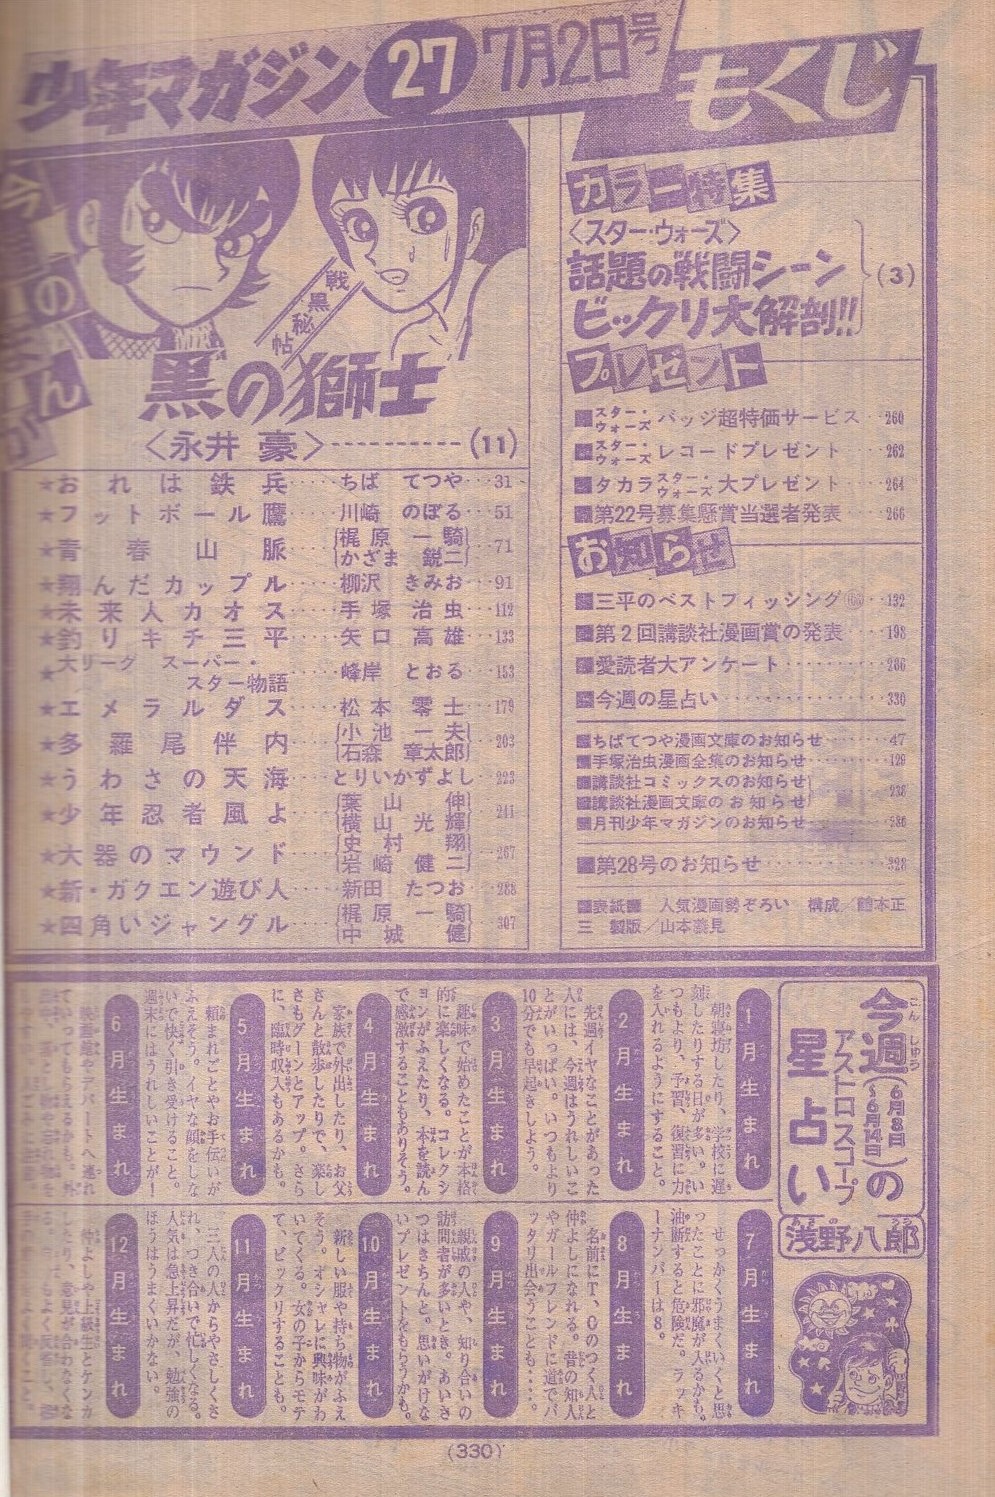 少年マガジン 27 7月2日号
もくじ
戦黒秘帖
黒の獅士
〈永井 豪〉(11)
★おれは鉄兵 ちば てつや 31
★フットボール鷹 川崎 のぼる 51
★青春山脈 梶原一騎 かざま鋭二 71
★翔んだカップル 柳沢 きみお 91
★未来人カオス 手塚 治虫 112
★釣りキチ三平 矢口 高雄 133
★大リーグ スーパー・スター物語 峰岸 とおる 153
★エメラルダス 松本 零士 179
★多羅尾伴内 小池一夫 石森章太郎 203
★うわさの天海 とりいかずよし 223
★少年忍者風よ 葉山伸 横山光輝 241
★大器のマウンド 史村翔 岩崎健二 267
★新・ガクエン遊び人 新田 たつお 288
★四角いジャングル 梶原一騎 中城健 307
カラー特集
〈スター・ウォーズ〉
話題の戦闘シーン
ビックリ大解剖!!
(3)
プレゼント
■スター・ウォーズ バッジ超特価サービス 260
■スター・ウォーズ レコードプレゼント 262
■タカラ スター・ウォーズ 大プレゼント 264
■第22号募集懸賞当選者発表 266
おしらせ
■三平のベストフィッシング 132
■第2回講談社漫画賞の発表 198
■愛読者大アンケート 286
■今週の星占い 330
■ちばてつや漫画文庫のお知らせ 47
■手塚治虫漫画全集のお知らせ 129
■講談社コミックスのお知らせ
■講談社漫画文庫のお知らせ 236
■月刊少年マガジンのお知らせ 286
■第28号のお知らせ 328
■表紙■ 人気漫画勢ぞろい 構成/
三 製版/山本
今週(6月8日~6月14日)の
アストロスコープ
星占い
浅野八郎
1月生まれ
朝寝坊したり、学校に遅
刻したりする日が多い。い
つもより、予習、復習に力
を入れるようにすること。
2月生まれ
先週イヤなことがあった
人には、今週はうれしいこ
とがいっぱい。いつもより
10分でも早起きしよう。
3月生まれ
趣味で始めたことが本格
的に楽しくなる。コレクシ
ョンがふえたり、本を読ん
で感激することもありそう。
4月生まれ
家族で外出したり、お父
さんと散歩したりで、楽し
さもグーンとアップ。さら
に、臨時収入もあるかも。
5月生まれ
頼まれごとやお手伝いが
ふえそう。イヤな顔をしな
いで快く引き受けること。
週末にはうれしいことが!
6月生まれ
映画館やデパートへ連れ
ていってもらえるかも。外
7月生まれ
せっかくうまくいくと思
ったことに邪魔が入るかも。
油断すると危険だ。ラッキ
ーナンバーは8。
8月生まれ
名前にT、Cのつく人と
仲よしになれる。昔の知人
やガールフレンドに道でバ
ッタリ出会うことも…。
9月生まれ
親戚の人や、知り合いの
訪問者が多いとき。あいさ
つはきちんと。思いがけな
いプレゼントをもらうかも。
10月生まれ
新しい服や持ち物がふえ
そう。オシャレに興味がわ
いてくる。女の子からモテ
て、ビックリすることも。
11月生まれ
三人の人からやさしくさ
れ、つき合いで忙しくなる。
人気は急上昇だが、勉強の
ほうはうまくいかない。
12月生まれ
仲よしや上級生とケンカ
(330)